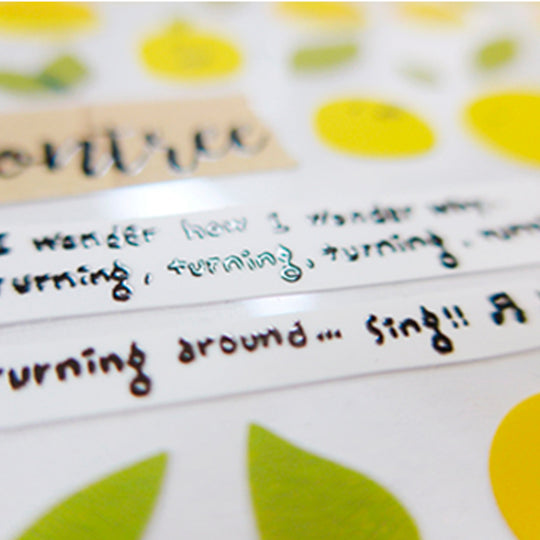 ontree
I wonder how I wonder why.
turning, turning, turning,
turning around... Sing!!